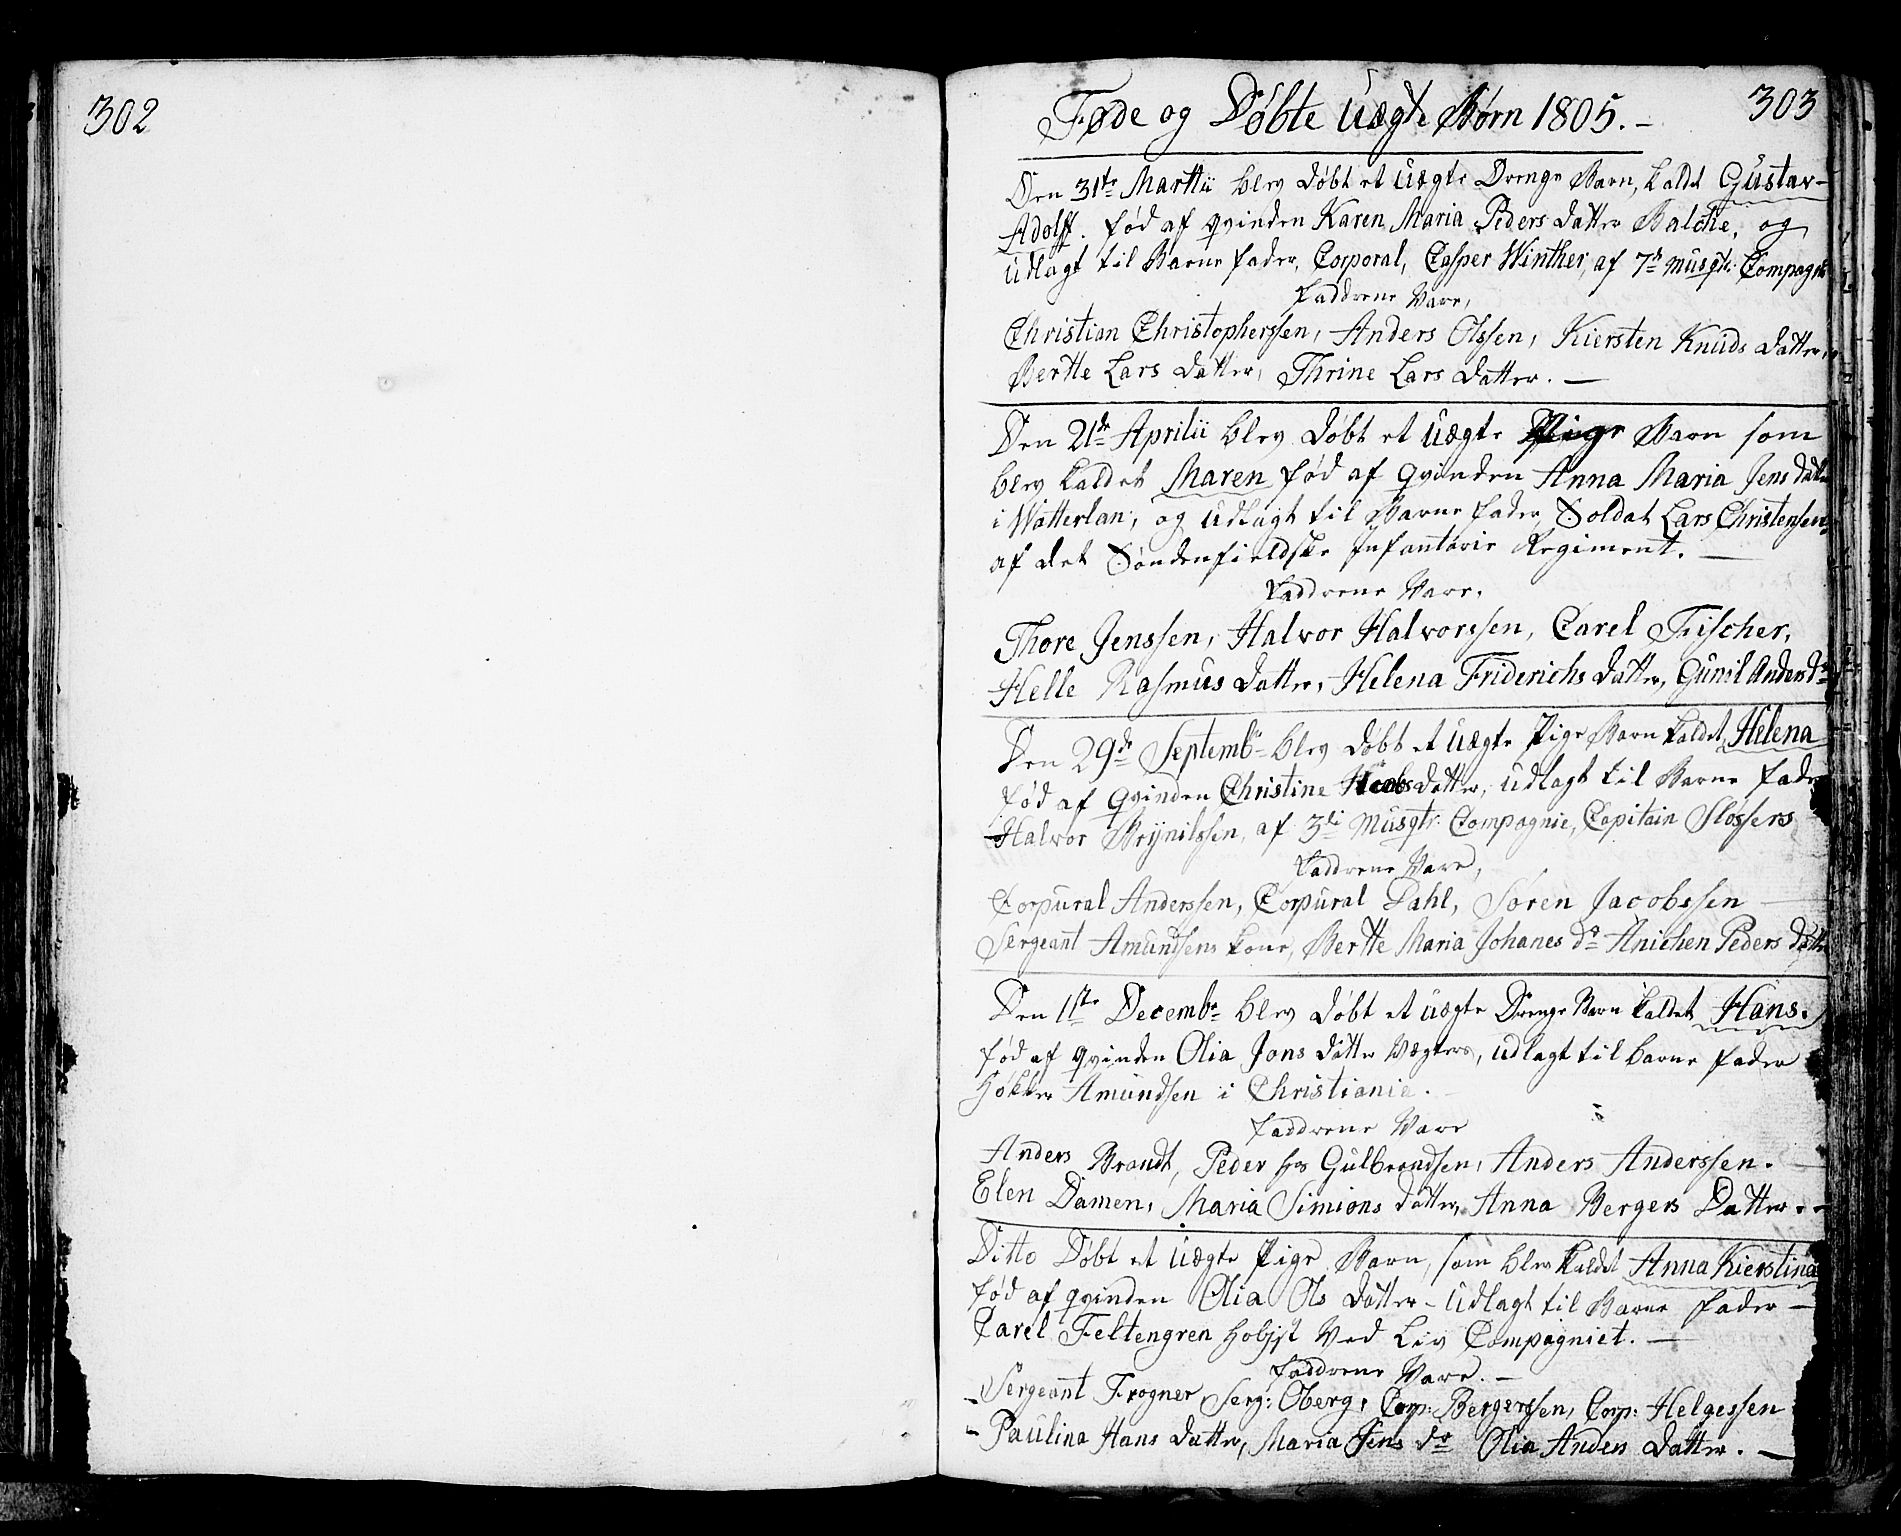 302
303
Føde og Døbte Uægte Børn 1805.-
Den 31te Martii blev døbt et Uægte Drenge Barn, kaldet Gustav-
Adolff. fød af qvinden Karen Maria Peders datter Balche, og
Udlagt til Barne fader, Corporal, Casper Winther, af 7de Musqtr: Compagnie
Faddrene Vare,
Christian Christopherssen, Anders Olssen, Kiersten Knuds datter,
Berthe Lars datter, Thrine Lars datter. —
Den 21de Aprilii blev døbt et Uægte Pige Barn som
blev kaldet Maren fød af qvinden Anna Maria Jens datter
i Watterlan, og Udlagt til Barne fader, Soldat Lars Christensen,
af det Søndenfieldske Infanterie Regiment. —
Faddrene Vare,
Thore Jenssen, Halvor Halvorssen, Carel Fischer,
Helle Rasmus datter, Helena Friderichs datter, Gunil Anders dr
Den 29de Septembr blev døbt et Uægte Pige Barn kaldet Helena
fød af qvinden Christine datter, Udlagt til Barne fader
Halvor Brynilssen, af 3di Musqtr: Compagnie, Capitain Slossers
Faddrene Vare,
Corpural Anderssen, Corpural Dahl, Søren Jacobssen —
Sergeant Amundsens kone, Berthe Maria Johanes dr Anichen Peders datter
Den 1ste Decembr blev døbt et Uægte Drenge Barn kaldet Hans.
fød af qvinden Olia Jons datter Vægters, udlagt til barne fader
Høkker Amundsen i Christiania.
Faddrene Vare
Anders Brandt, Peder hos Gulbrandsen, Anders Anderssen. —
Elen Damen, Maria Simions datter, Anna Bergers Datter. -
Ditto Døbt et Uægte Pige Barn, som blev kaldet Anna Kierstina
fød af qvinden Olia Ols datter - Udlagt til Barne fader —
Carel Feltengren Hobjst Ved Liv Compagniet. —
Faddrene Vare. —
Sergeant Frogner, Serg: Oberg, Corp: Bergerssen, Corp: Helgessen
Paulina Hans datter, Maria Jens dr Olia Anders datter. —